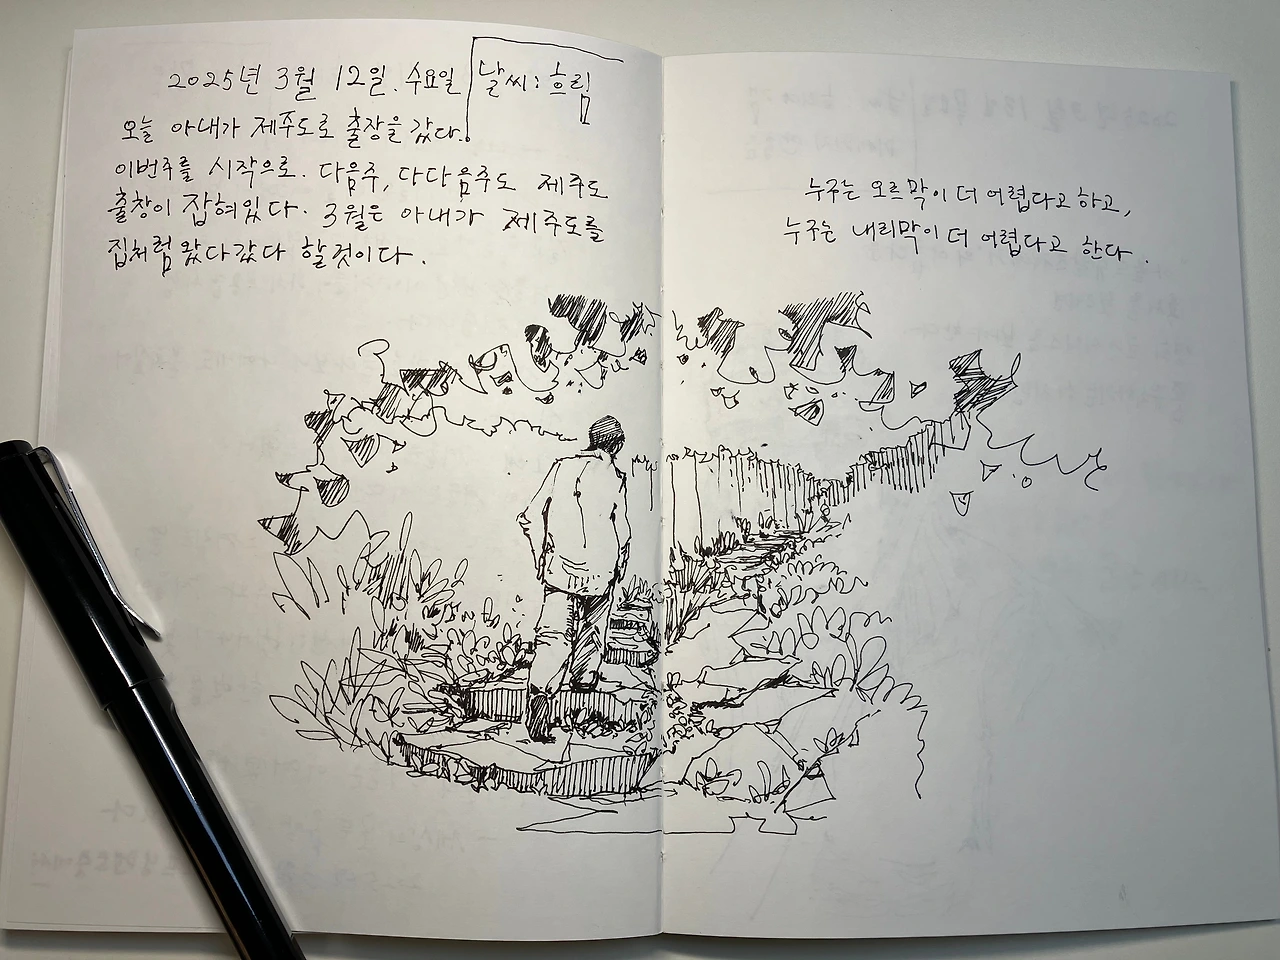 2025년 3월 12일. 수요일 날씨: 흐림
오늘 아내가 제주도로 출장을 갔다.
이번주를 시작으로. 다음주, 다다음주도 제주도
출장이 잡혀있다. 3월은 아내가 제주도를
집처럼 왔다갔다 할것이다.
누구는 오르막이 더 어렵다고 하고,
누구는 내리막이 더 어렵다고 한다.